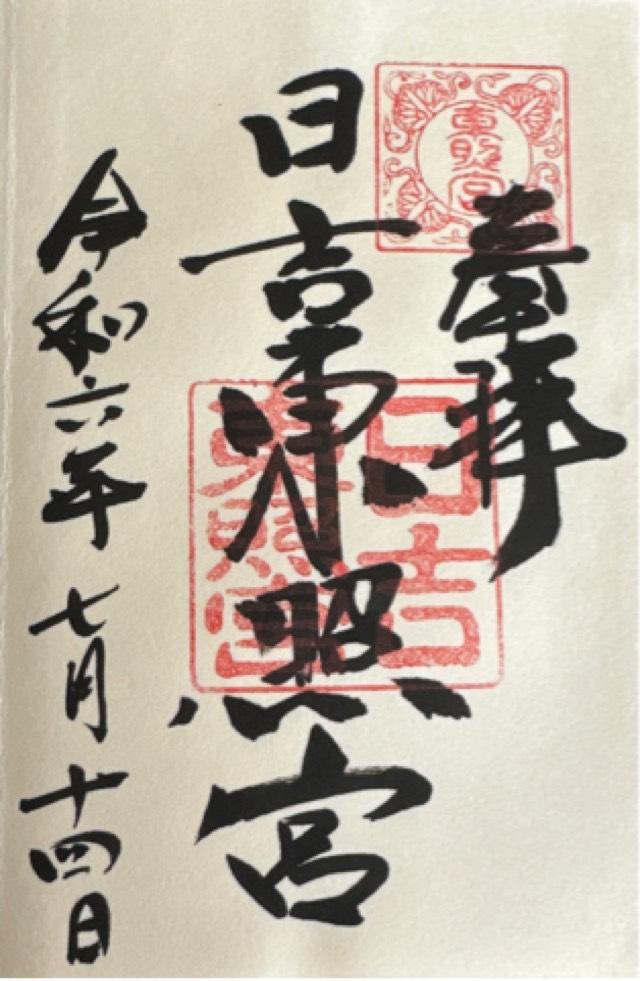 奉拝
東照宮
日吉東照宮
日吉
東照宮
令和六年七月十四日